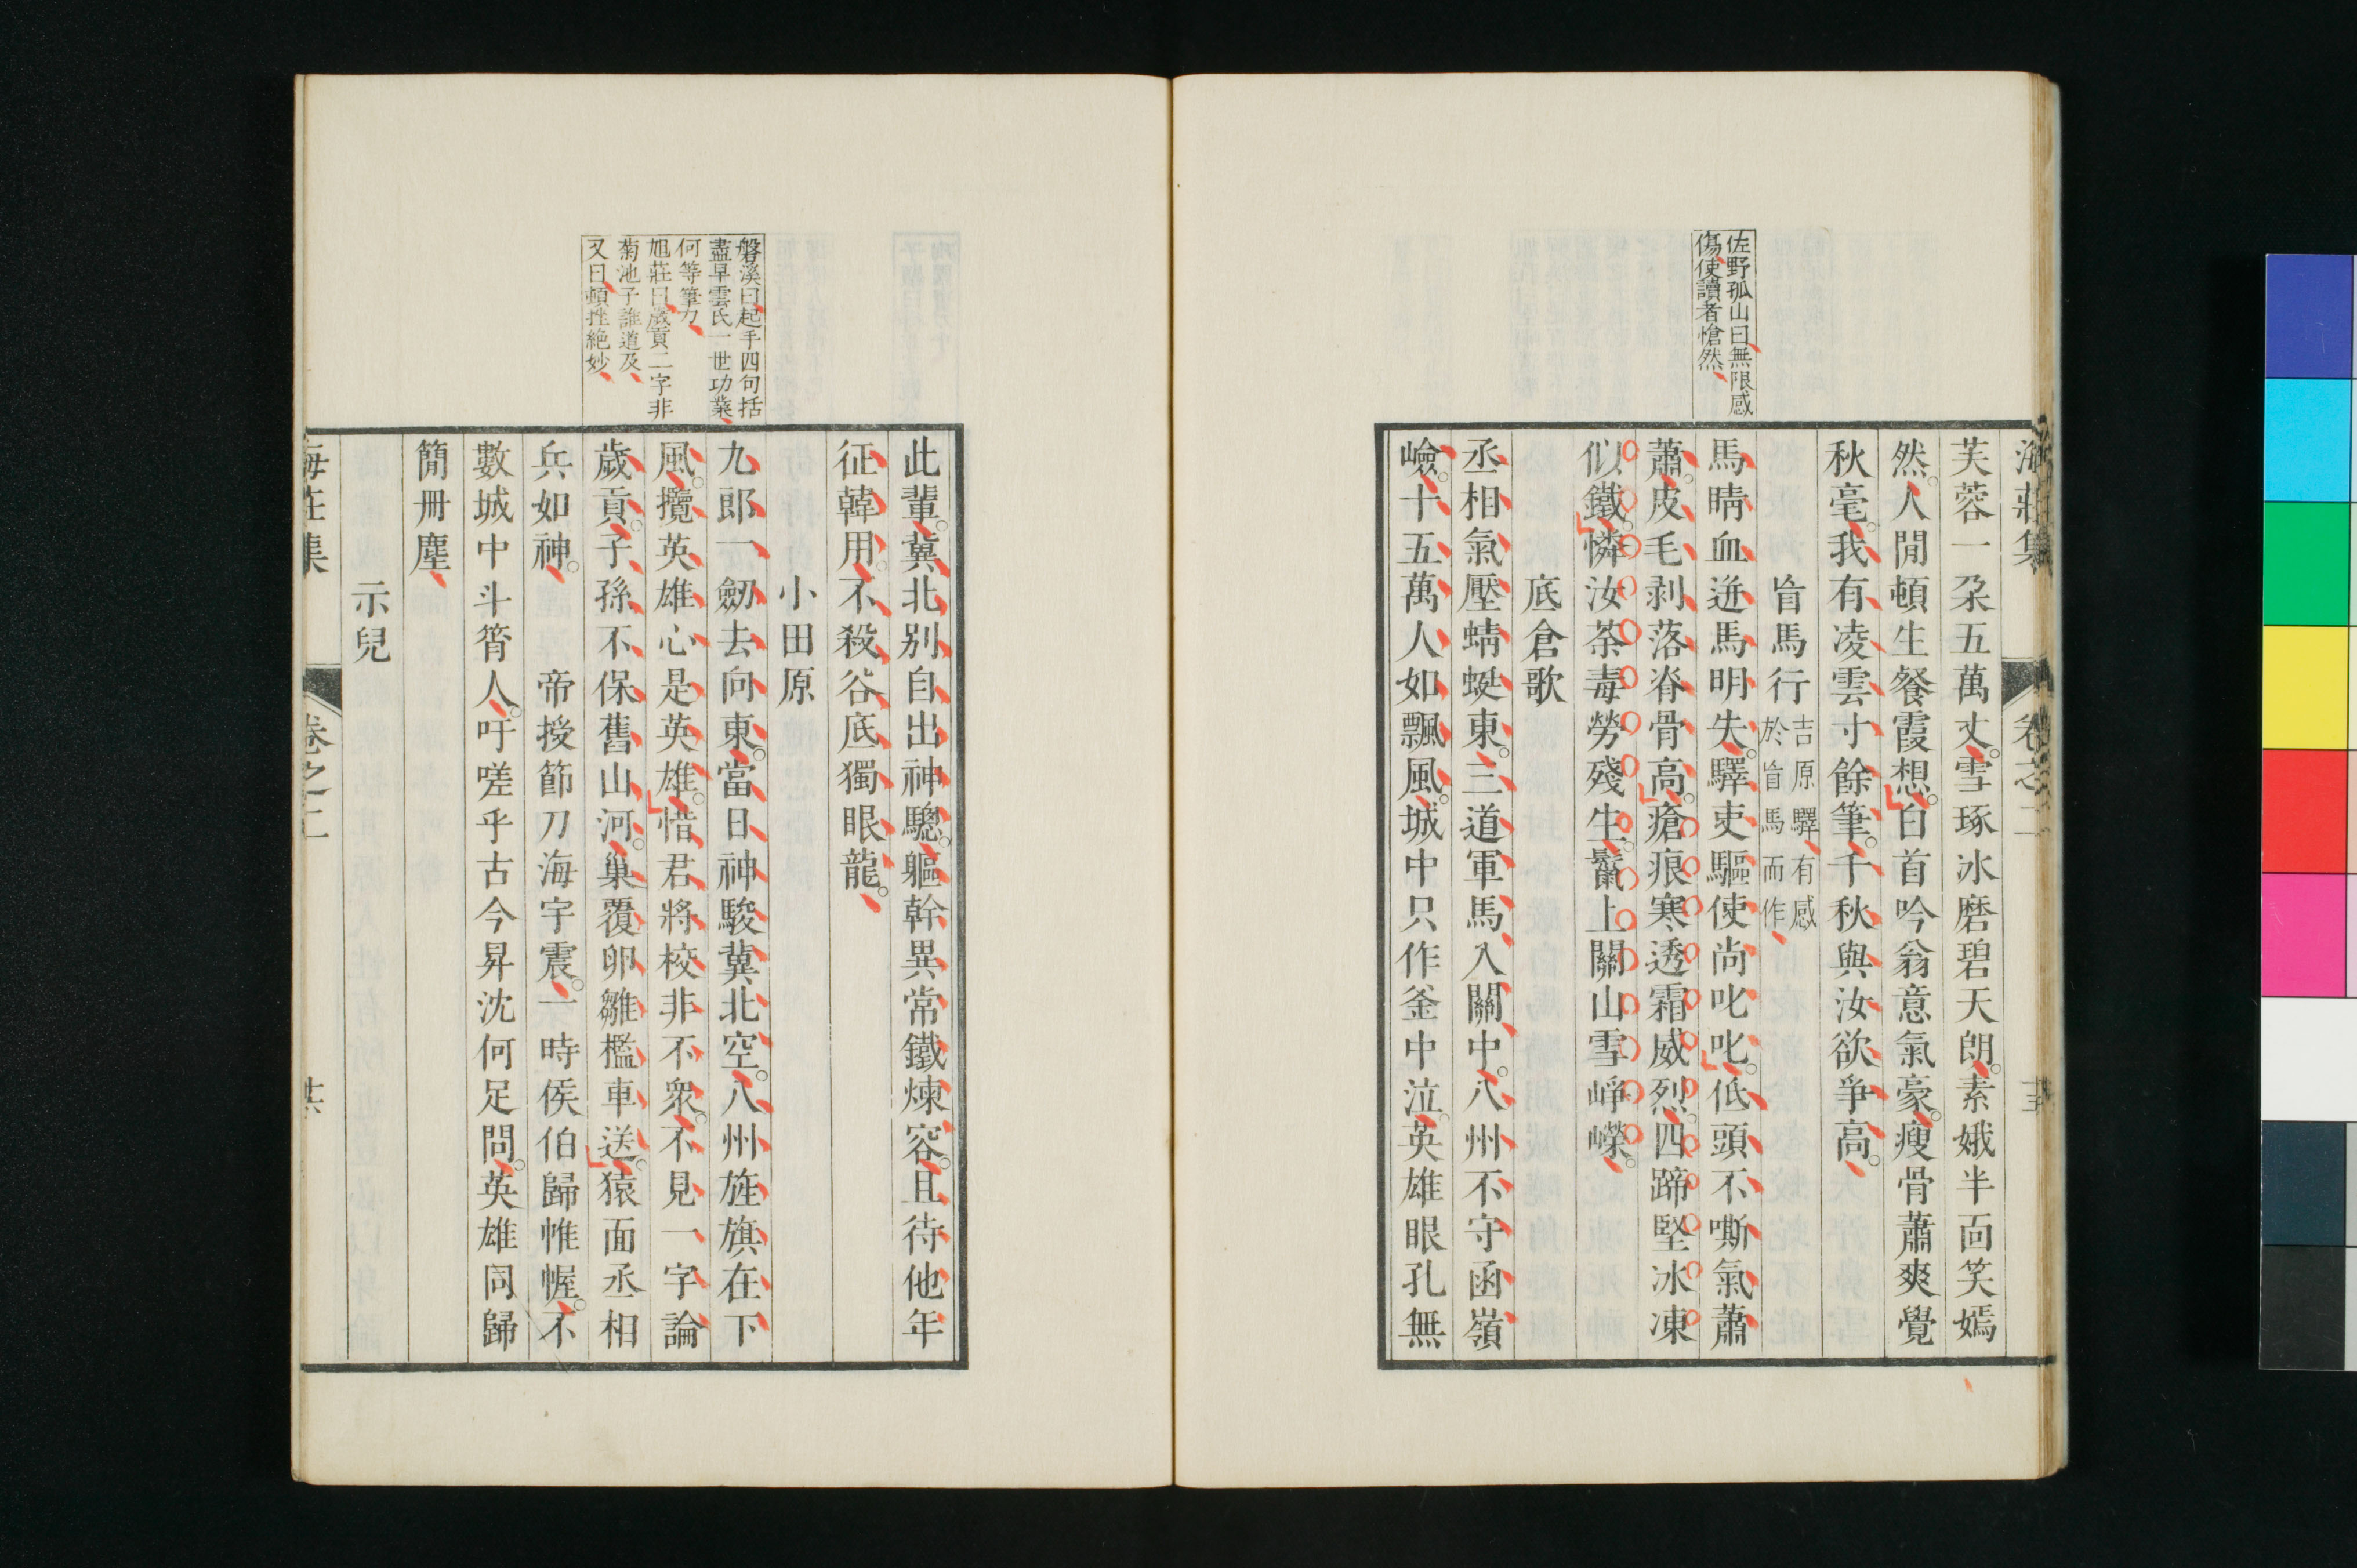 佐野孤山曰無限感
傷使讀者愴然
芙蓉一朶五萬丈。雪琢冰磨碧天朗。素娥半面笑嫣
然。人間頓生餐霞想。白首吟翁意氣豪。瘦骨蕭爽覺
秋毫。我有凌雲寸餘筆。千秋與汝欲爭高。
盲馬行
吉原驛有感
於盲馬而作
馬睛血迸馬明失。驛吏驅使尚叱叱。低頭不嘶氣蕭
蕭。皮毛剥落脊骨高。瘡痕寒透霜威烈。四蹄堅冰凍
似鐵。憐汝荼毒勞殘生。鬣上關山雪崢嶸。
底倉歌
丞相氣壓蜻蜓東。三道軍馬入關中。八州不守函嶺
嶮。十五萬人如飄風。城中只作釜中泣。英雄眼孔無
磐溪曰起手四句括
盡早雲氏一世功業
何等筆力
旭莊曰歲貢二字非
菊池子誰道及
又曰頓挫絶妙
此輩。冀北別自出神驄。軀幹異常鐵煉容。且待他年
征韓用。不殺谷底獨眼龍。
小田原
九郎一劔去向東。當日神駿冀北空。八州旌旗在下
風。攬英雄心是英雄。惜君將校非不衆。不見一字論
歲貢。子孫不保舊山河。巢覆卵雛檻車送。猿面丞相
兵如神。 帝授節刀海宇震。一時侯伯歸帷幄。不
數城中斗筲人。吁嗟乎古今昇沈何足問。英雄同歸
簡冊塵
示兒
卷之二